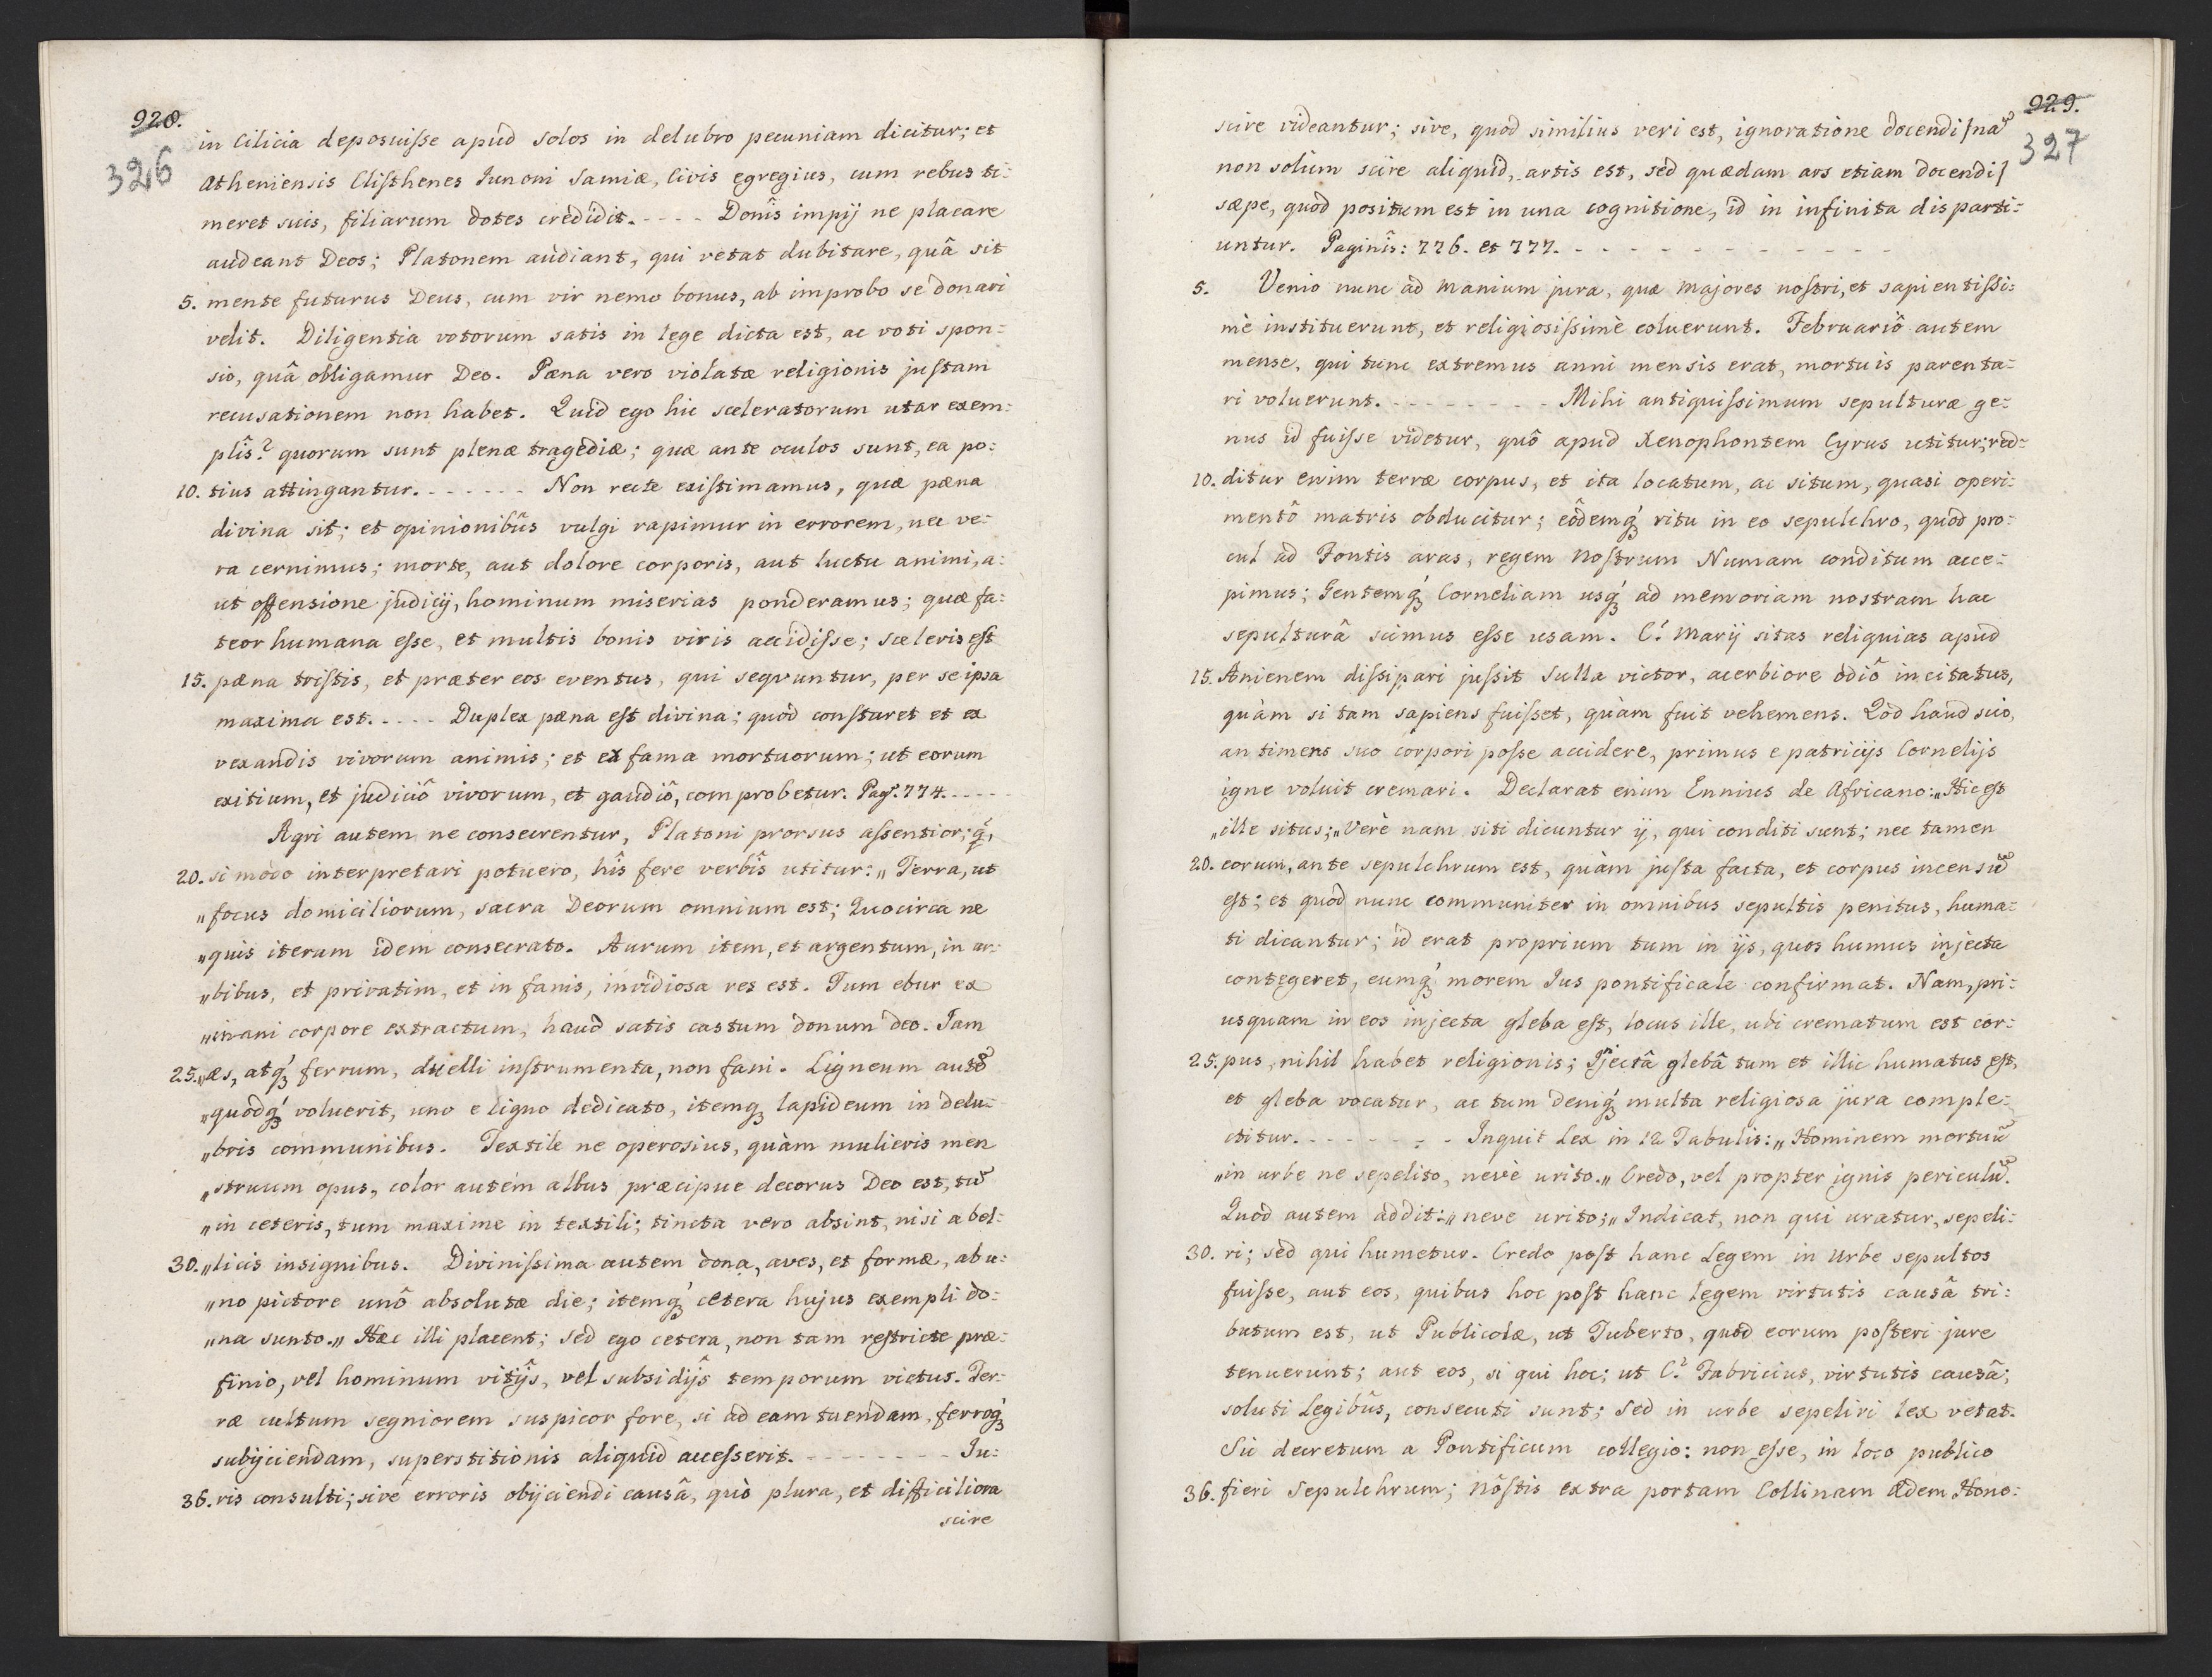 928.
326
in Cilicia deposuisse apud Solos in delubro pecuniam dicitur; et
Atheniensis Clisthenes Iunoni Samiæ, Civis egregius, cum rebus ti:
meret suis, filiarum dotes credidit. - - - - Donîs impij ne placare
audeant Deos; Platonem audiant, qui vetat dubitare, quâ sit
5. mente futurus Deus, cum vir nemo bonus, ab improbo se donari
velit. Diligentia votorum satis in lege dicta est, ac voti spon:
sio, quâ obligamur Deo. Pæna vero violatæ religionis justam
recusationem non habet. Quid ego hic sceleratorum utar exem:
plîs? quorum sunt plenæ tragediæ; quæ ante oculos sunt, ea po:
10. tius attingantur. - - - - - - Non recte existimamus, quæ pæna
divina sit; et opinionibûs vulgi rapimur in errorem, nec ve:
ra cernimus; morte, aut dolore corporis, aut luctu animi, a:
ut offensione judicij, hominum miserias ponderamus; quæ fa:
teor humana esse, et multis bonis viris accidisse; sceleris est
15. pæna tristis, et præter eos eventus, qui sequuntur, per se ipsa
maxima est. - - - - Duplex pæna est divina; quod constaret et ex
vexandis vivorum animis; et ex fama mortuorum; ut eorum
exitium, et judiciô vivorum, et gaudiô, comprobetur. Pag. 774. - - - -
Agri autem ne consecrentur, Platoni prorsus assentior; q́,
20. si modo interpretari potuero, hîs fere verbîs utitur: „Terra, ut
„focus domiciliorum, sacra Deorum omnium est; Quocirca ne
„quis iterum idem consecrato. Aurum item, et argentum, in ur:
„bibus, et privatim, et in fanis, invidiosa res est. Tum ebur ex
„inani corpore extractum, haud satis castum donum Deo. Jam
25. „æs, atq́ ferrum, duelli instrumenta, non fani. Ligneum autē
„quodq́ voluerit, uno e ligno dedicato, itemq lapideum in delu:
„bris communibus. Textile ne operosius, quàm mulieris men
„struum opus, color autem albus præcipue decorus Deo est, tū
„in ceteris, tum maxime in textili; tincta vero absint, nisi a bel:
30. „licis insignibus. Divinissima autem dona, aves, et formæ, ab u:
„no pictore unô absolutæ die; itemq́ cetera hujus exempli do:
„na sunto.„ Hæc illi placent; sed ego cetera, non tam restricte præ:
finio, vel hominum vitijs, vel subsidijs temporum victus. Ter:
ræ cultum segniorem suspicor fore, si ad eam tuendam, ferroq́
subijciendam, superstitionis aliquid accesserit. - - - - - - - - Ju:
36. ris consulti; sive erroris obijciendi causâ, quò plura, et difficiliora
scire
929.
327
scire videantur; sive, quod similius veri est, ignoratione docendi/nā
non solùm scire aliquid, artis est, sed quædam ars etiam docendi/
sæpe, quod positum est in una cognitione, id in infinita disparti:
untur. Paginîs: 776. et 777. - - - - - - - - - -
5. Venio nunc ad Manium jura, quæ Majores nostri, et sapientissi:
mè instituerunt, et religiosissimè coluerunt. Februariô autem
mense, qui tunc extremus anni mensis erat, mortuis parenta:
ri voluerunt. - - - - - - - - - Mihi antiquissimum sepulturæ ge:
nus id fuisse videtur, quô apud Xenophontem Cyrus utitur; red:
10. ditur enim terræ corpus, et ita locatum, ac situm, quasi operi:
mentô matris obducitur; eôdemq́ ritu in eo sepulchro, quod pro:
cul ad Fontis aras, regem nostrum Numam conditum acce:
pimus; Gentemq́ Corneliam usq́ ad memoriam nostram hac
sepulturâ scimus esse usam. C. Marij sitas reliquias apud
15. Anienem dissipari jussit Sulla victor, acerbiore odiô incitatus,
quàm si tam sapiens fuisset, quàm fuit vehemens. Qod haud scio,
an timens suo corpori posse accidere, primus e patricijs Cornelijs
igne voluit cremari. Declarat enim Ennius de Africano: „Hic est
„ille situs;„ Verè nam siti dicuntur ij, qui conditi sunt; nec tamen
20. eorum, ante sepulchrum est, quàm justa facta, et corpus incensū
est; et quod nunc communiter in omnibus sepultis penitus, huma:
ti dicantur; id erat proprium tum in ijs, quos humus injecta
contegeret, eumq́ morem Jus pontificale confirmat. Nam, pri:
usquam in eos injecta gleba est, locus ille, ubi crematum est cor:
25. pus, nihil habet religionis; Injectâ glebâ tum et illic humatus est,
et gleba vocatur, ac tum deniq́ multa religiosa jura comple:
ctitur. - - - - - - - - Inquit Lex in 12 Tabulis: „Hominem mortuū
„in urbe ne sepelito, nevè urito.„ Credo, vel propter ignis periculū.
Quod autem addit: „neve urito;„ Indicat, non qui uratur, sepeli:
30. ri; sed qui humetur. Credo post hanc Legem in Urbe sepultos
fuisse, aut eos, quibus hoc post hanc legem virtutis causâ tri:
butum est, ut Publicolæ, ut Tuberto, quod eorum posteri jure
tenuerunt; aut eos, si qui hoc; ut C. Fabricius, virtutis causâ;
soluti Legibûs, consecuti sunt; Sed in urbe sepeliri lex vetat.
Sic decretum a Pontificum collegio: non esse, in loco publico
36. fieri Sepulchrum; nôstis extra portam Collinam Ædem Hono: